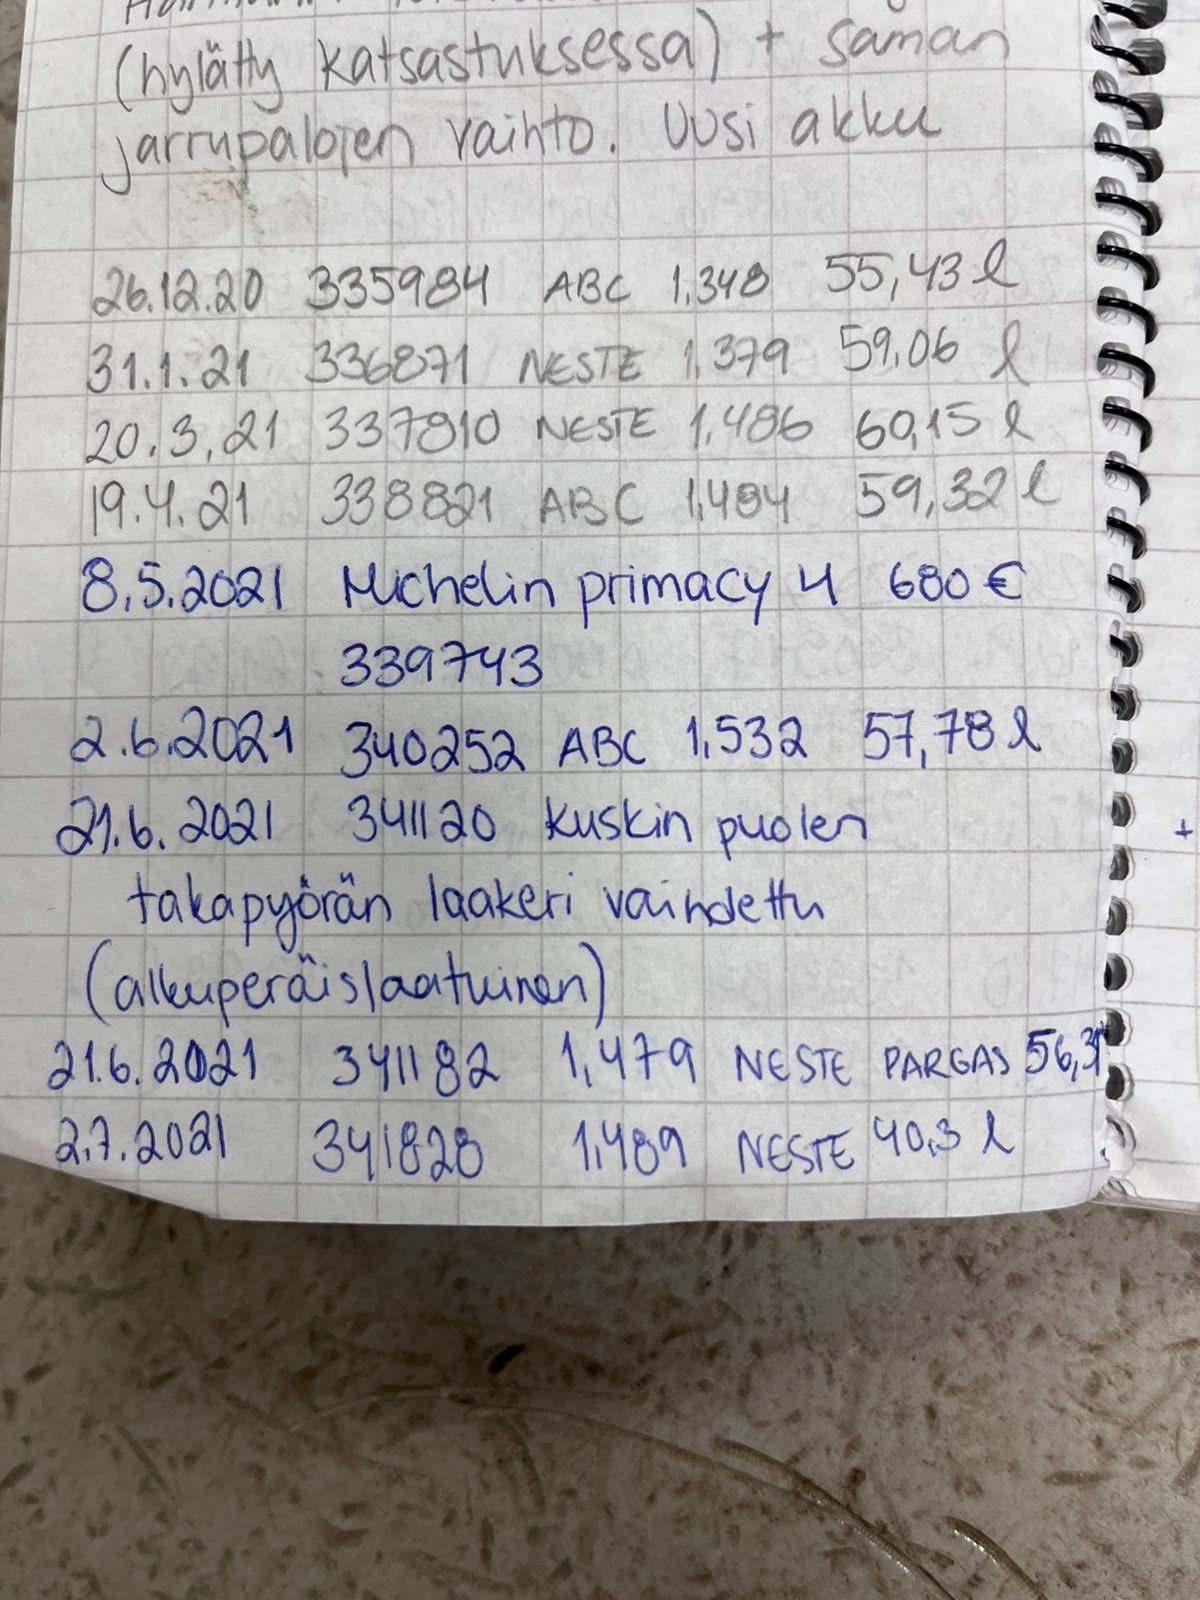 (hylätty katsastuksessa) + saman
jarrupalojen vaihto. Uusi akku
26.12.20 335984 ABC 1,348 55,43 l
31.1.21 336871 NESTE 1,379 59,06 l
20.3.21 337810 NESTE 1,486 60,15 l
19.4.21 338821 ABC 1,484 59,32 l
8.5.2021 Michelin primacy 4 680 €
339743
2.6.2021 340252 ABC 1,532 57,78 l
21.6.2021 341120 Kuskin puolen
takapyörän laakeri vaihdettu
(alkuperäislaatuinen)
21.6.2021 341182 1,479 NESTE PARGAS
2.7.2021 341828 1,489 NESTE 40,3 l
+